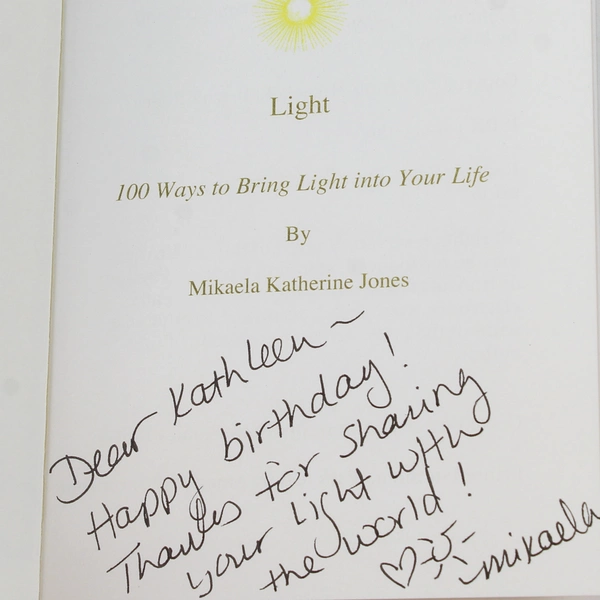 Light
100 Ways to Bring Light into Your Life
By
Mikaela Katherine Jones
Dear Kathleen ~
Happy birthday!
Thanks for sharing
your light with
the world!
mikaela